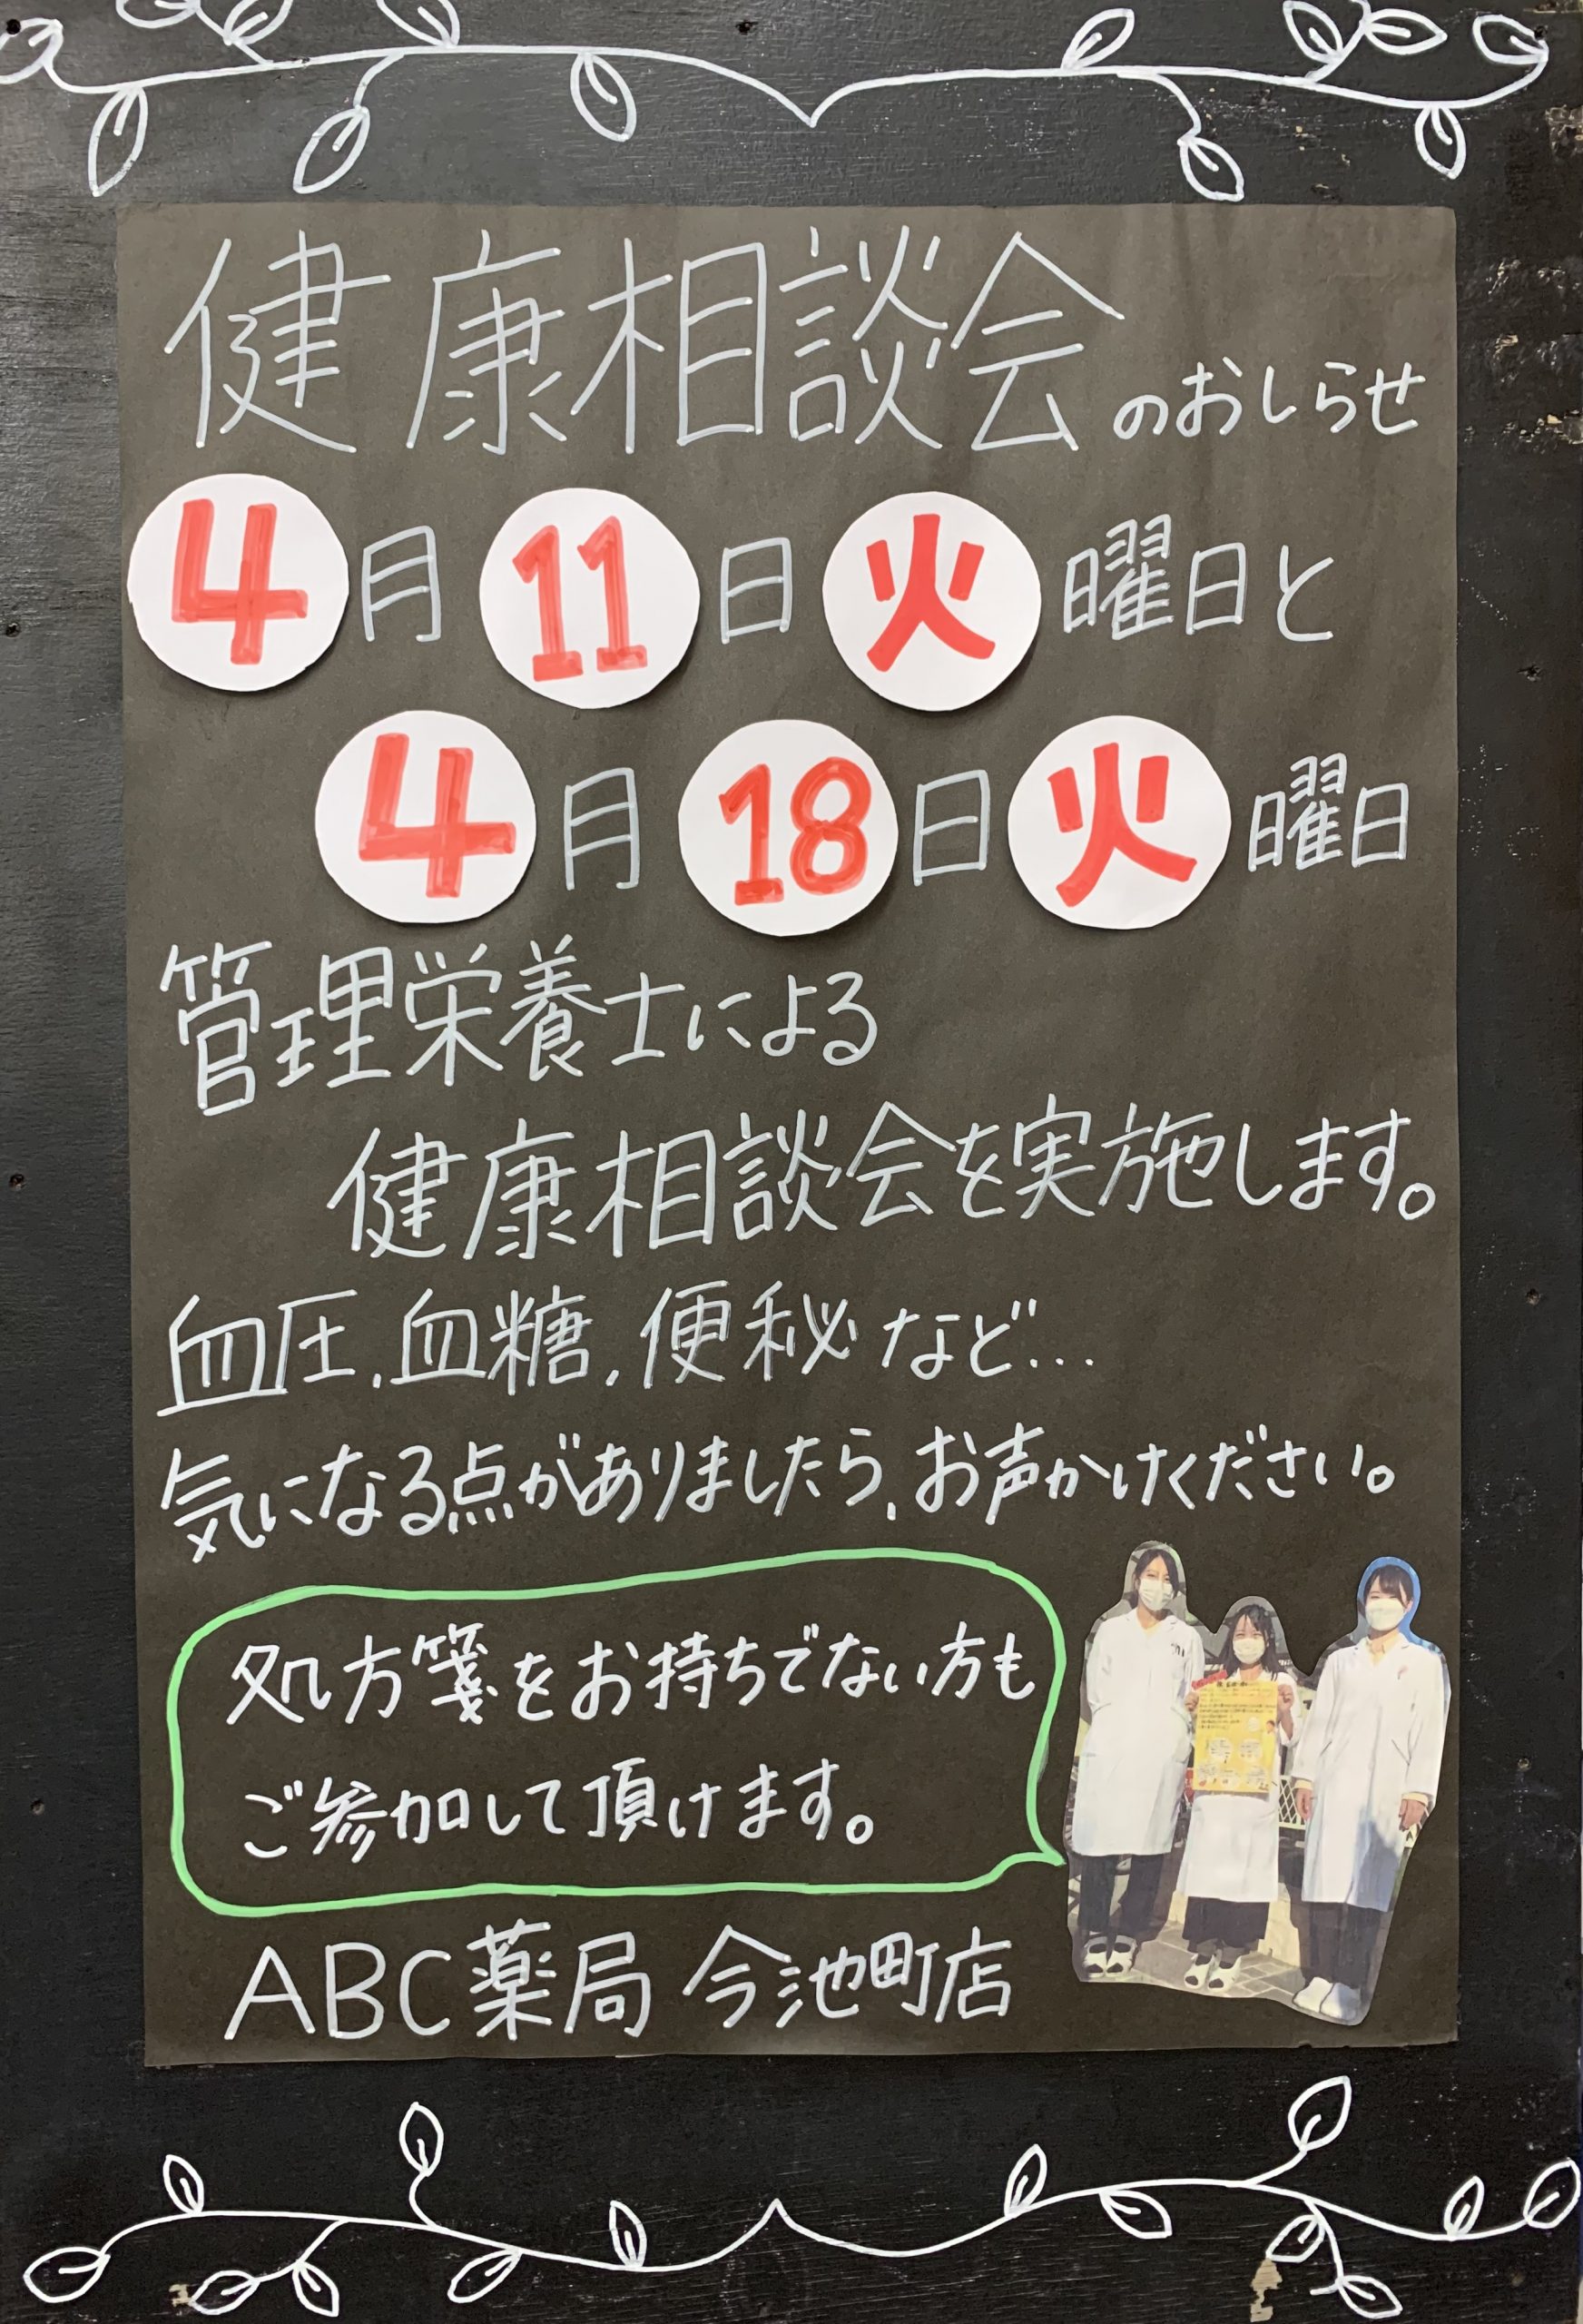 健康相談会のおしらせ
4月11日火曜日と
4月18日火曜日
管理栄養士による
健康相談会を実施します。
血圧、血糖、便秘など…
気になる点がありましたら、お声かけください。
処方箋をお持ちでない方も
ご参加して頂けます。
ABC薬局 今池町店